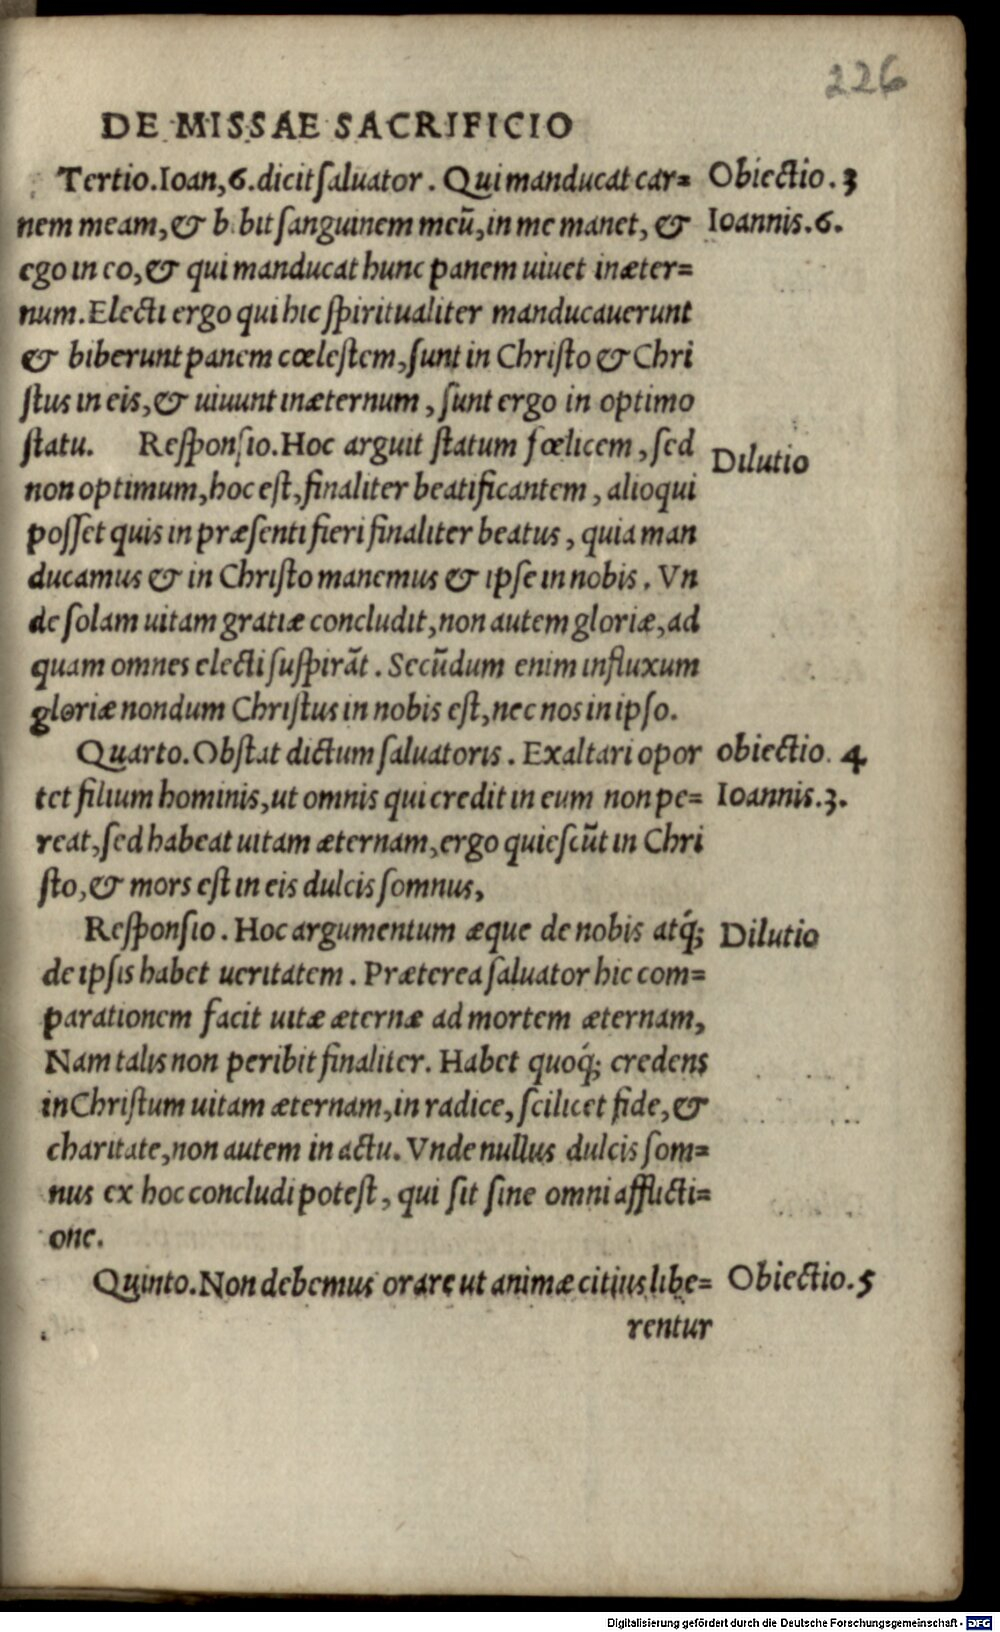 226
DE MISSAE SACRIFICIO
Tertio. Ioan, 6. dicit saluator. Qui manducat car= Obiectio. 3
nem meam, & b bit sanguinem meũ, in me manet, & Ioannis. 6.
ego in eo, & qui manducat hunc panem uiuet in æter=
num. Electi ergo qui hic spiritualiter manducauerunt
& biberunt panem cœlestem, sunt in Christo & Chri
stus in eis, & uiuunt in æternum, sunt ergo in optimo
statu. Responsio. Hoc arguit statum fœlicem, sed Dilutio
non optimum, hoc est, finaliter beatificantem, alioqui
posset quis in præsenti fieri finaliter beatus, quia man
ducamus & in Christo manemus & ipse in nobis. Vn
de solam uitam gratiæ concludit, non autem gloriæ, ad
quam omnes electi suspirãt. Secũdum enim influxum
gloriæ nondum Christus in nobis est, nec nos in ipso.
Quarto. Obstat dictum saluatoris. Exaltari opor obiectio. 4
tet filium hominis, ut omnis qui credit in eum non pe= Ioannis. 3.
reat, sed habeat uitam æternam, ergo quiescũt in Chri
sto, & mors est in eis dulcis somnus,
Responsio. Hoc argumentum æque de nobis atq́; Dilutio
de ipsis habet ueritatem. Præterea saluator hic com=
parationem facit uitæ æternæ ad mortem æternam,
Nam talis non peribit finaliter. Habet quoq́; credens
in Christum uitam æternam, in radice, scilicet fide, &
charitate, non autem in actu. Vnde nullus dulcis som=
nus ex hoc concludi potest, qui sit sine omni afflicti=
one.
Quinto. Non debemus orare ut animæ citius libe= Obiectio. 5
rentur
Digitalisierung gefördert durch die Deutsche Forschungsgemeinschaft - DFG